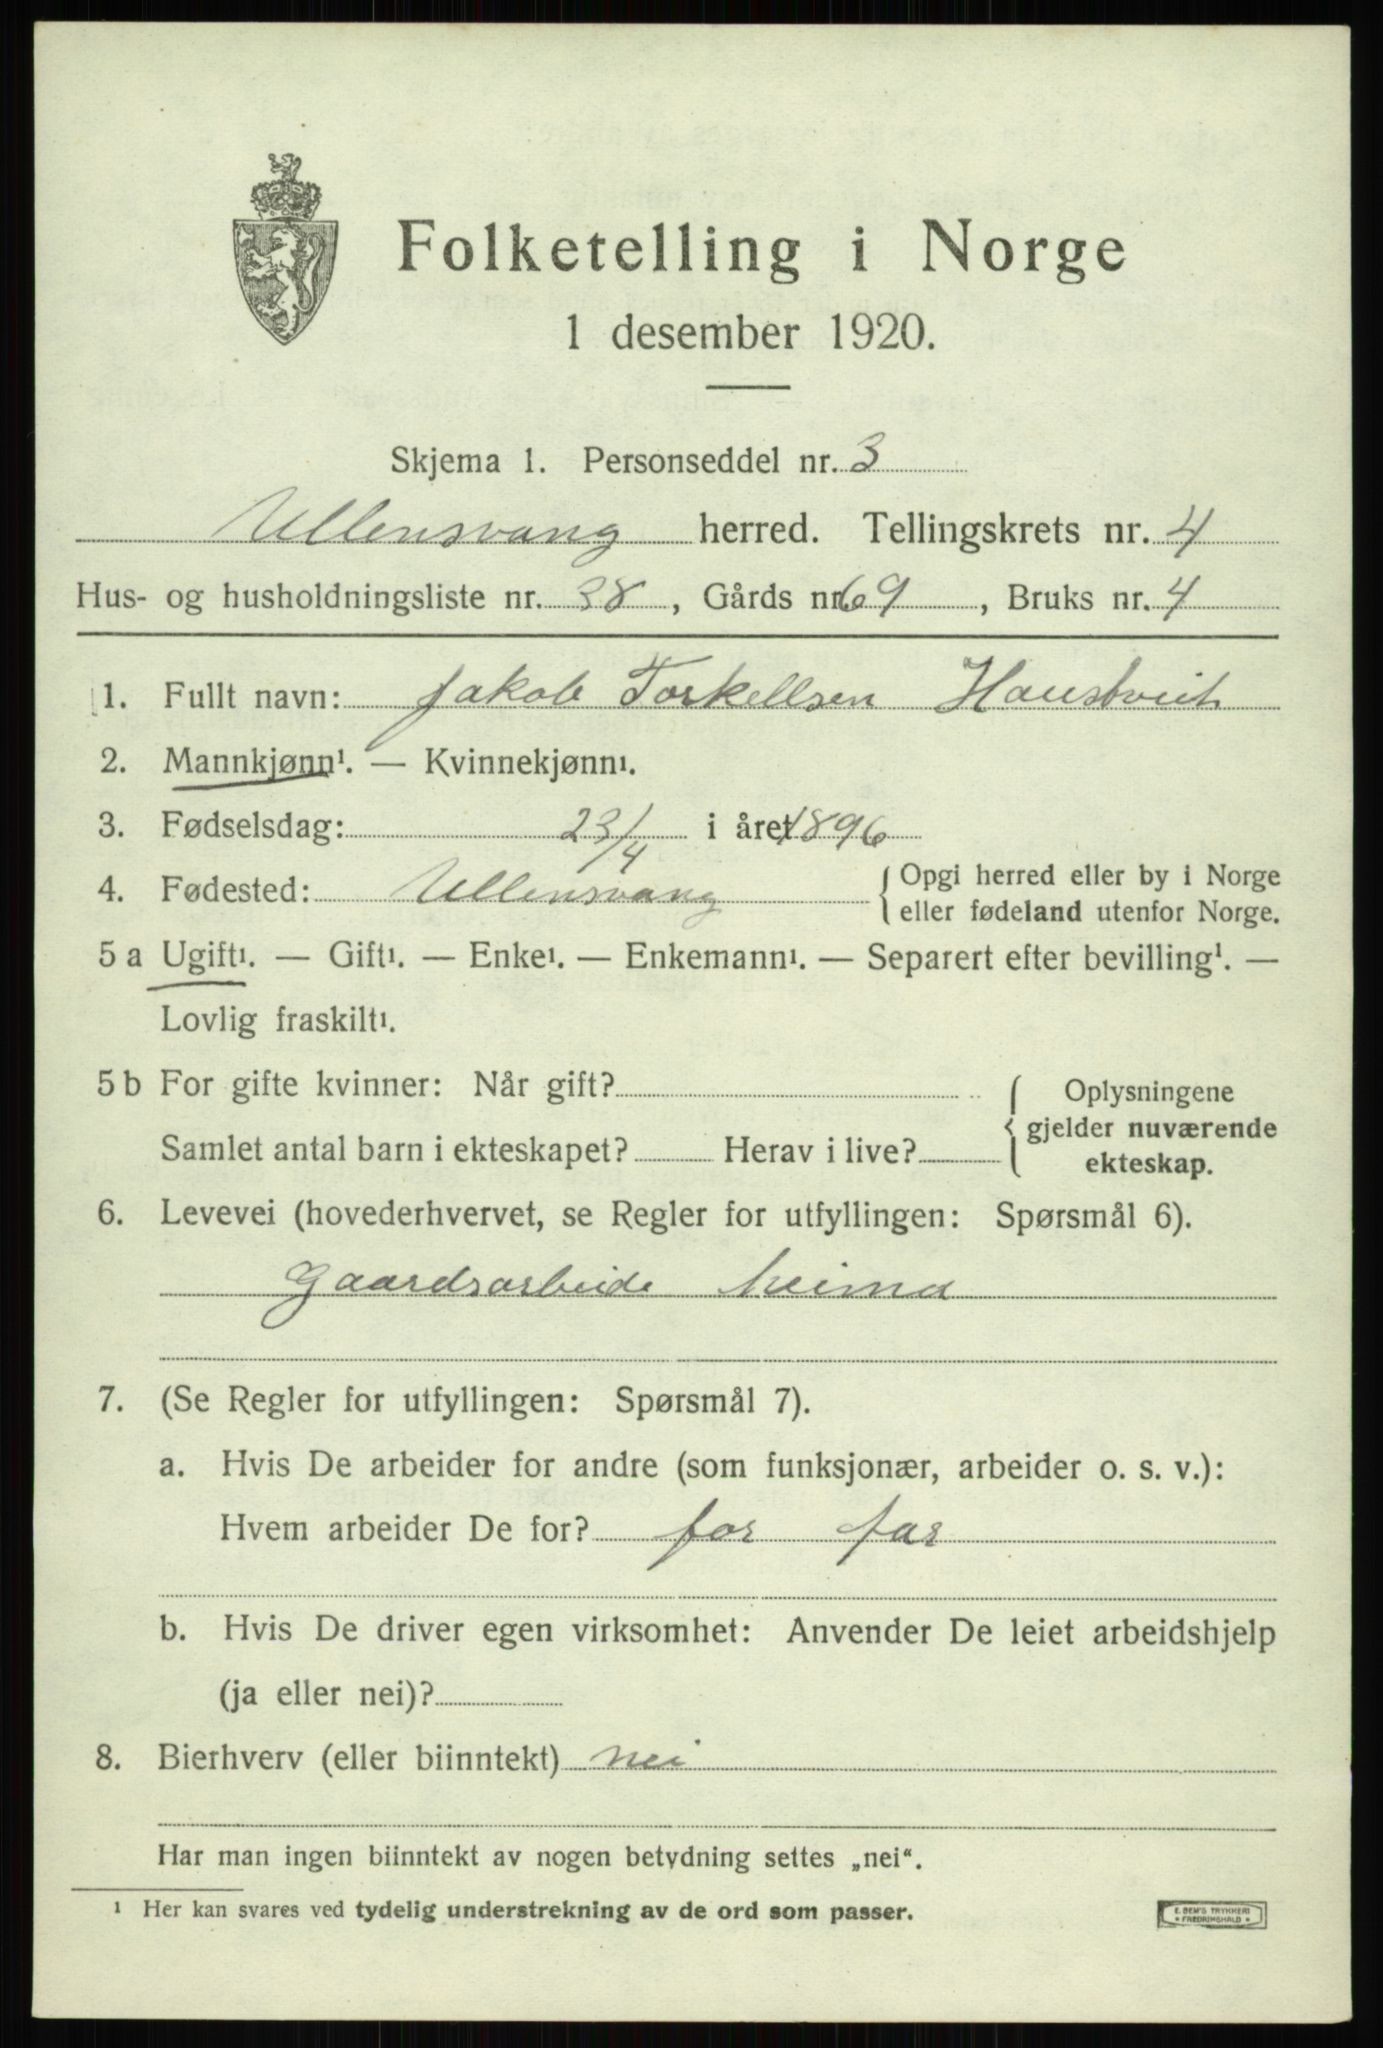 Folketelling i Norge
1 desember 1920.
Skjema 1. Personseddel nr. 3
Ullensvang herred. Tellingskrets nr. 4
Hus- og husholdningsliste nr. 38, Gårds nr. 69, Bruks nr. 4
1. Fullt navn: Jakob Torkellsen Haustveit
2. Mannkjønn¹. — Kvinnekjønn¹.
3. Fødselsdag: 23/4 i året 1896
4. Fødested: Ullensvang { Opgi herred eller by i Norge
eller fødeland utenfor Norge.
5 a Ugift¹. — Gift¹. — Enke¹. — Enkemann¹. — Separert efter bevilling¹. —
Lovlig fraskilt¹.
5 b For gifte kvinner: Når gift? { Oplysningene
gjelder nuværende
ekteskap.
Samlet antal barn i ekteskapet? Herav i live?
6. Levevei (hovederhvervet, se Regler for utfyllingen: Spørsmål 6).
Gaardsarbeide heima
7. (Se Regler for utfyllingen: Spørsmål 7).
a. Hvis De arbeider for andre (som funksjonær, arbeider o. s. v.):
Hvem arbeider De for? for far
b. Hvis De driver egen virksomhet: Anvender De leiet arbeidshjelp
(ja eller nei)?
8. Bierhverv (eller biinntekt) nei
Har man ingen biinntekt av nogen betydning settes „nei“.
¹ Her kan svares ved tydelig understrekning av de ord som passer.
E. SEM'S TRYKKERI
• FREDRIKSHALD •